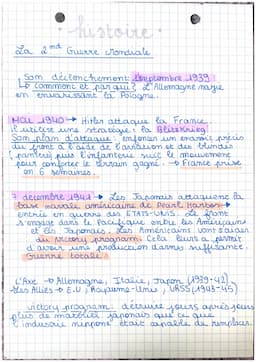 histoire
La 2nd Guerre Mondiale
Son déclenchement: septembre 1939
↳ Comment et par qui? L'Allemagne nazie
en envahissant la Pologne.
MAI 1940 → Hitler attaque la France,
il utilise une stratégie: la Blitzkrieg
Son plan d'attaque: enfoncer un endroit précis
du front à l'aide de l'aviation et des blindés
(panzers) puis l'infanterie suit le mouvement
pour conforter le terrain gagné. → France prise
en 6 semaines.
7 décembre 1941 → Les Japonais attaquent la
base navale américaine de Pearl Harbor →
entrée en guerre des ETATS-UNIS. Le front
s'engage dans le Pacifique entre les Américains
et les Japonais. Les Américains vont
du victory program. Cela leur a permit
d'avoir une production d'armes suffisante
Guerre totale.
L'Axe → Allemagne, Italie, Japon (1939-42).
Les Alliés → E.U, Royaume-Unis, URSS (1943-45)
victory program: détruire jours après jours
plus de matériel japonais que ce que
l'industrie nippone était capable de remplacer.